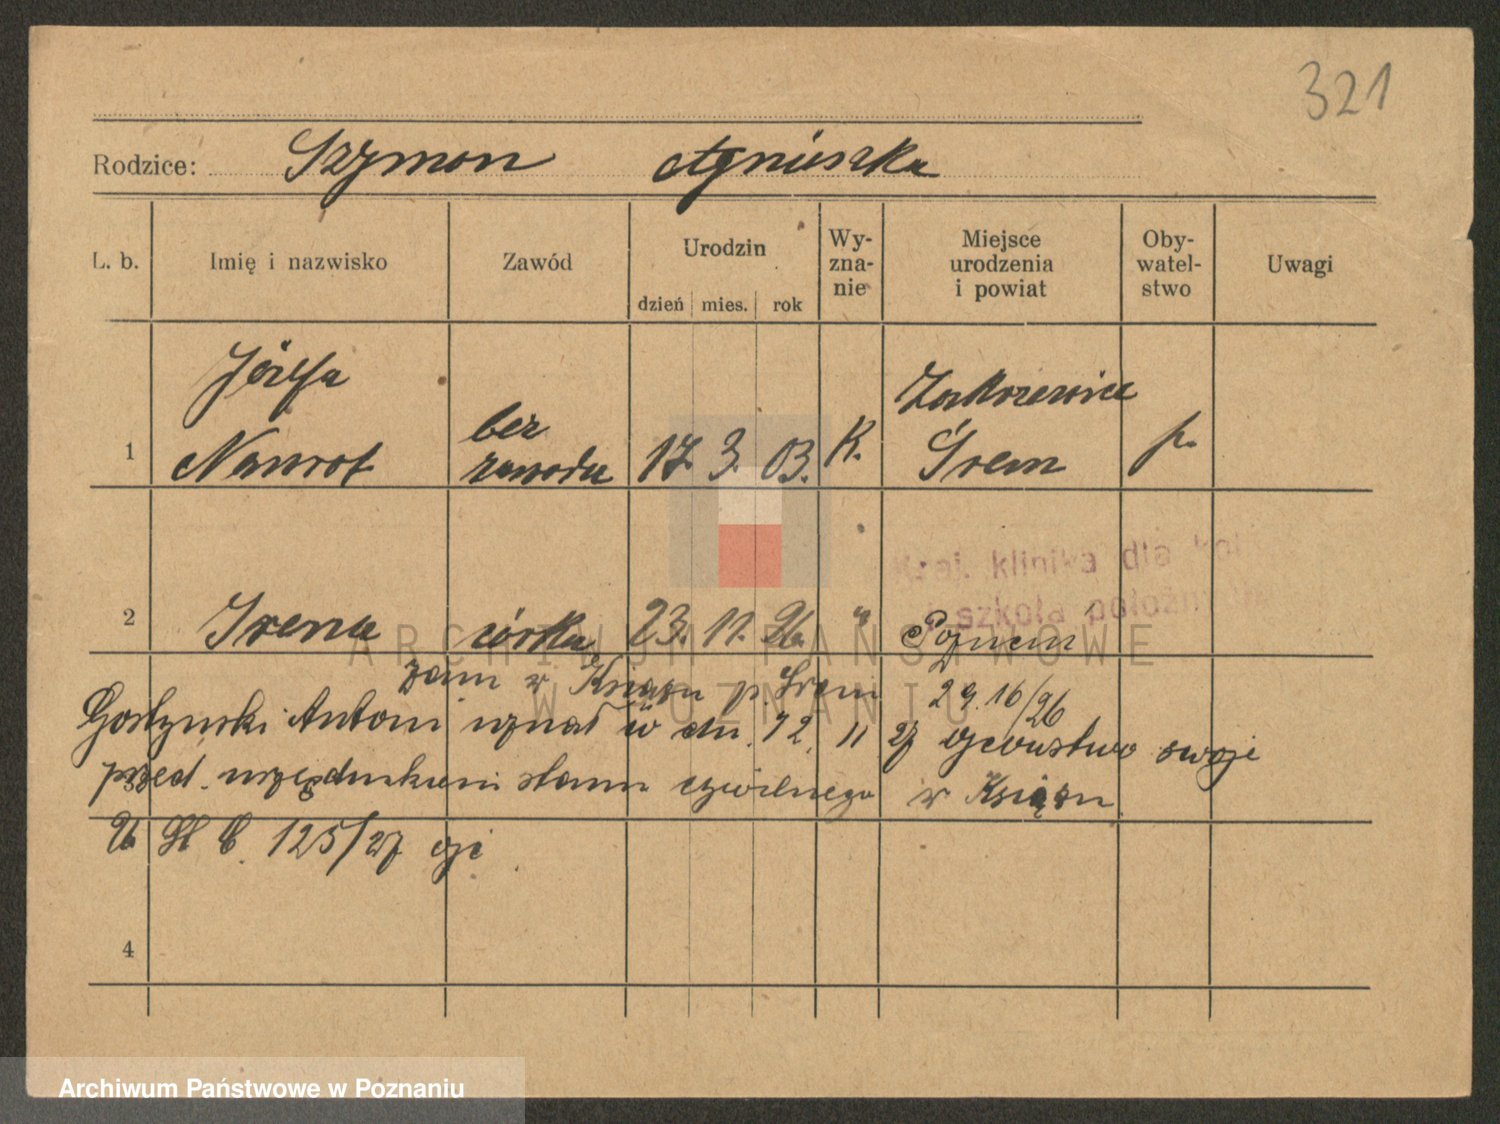 321
Rodzice: Szymon Agnieszka
L. b. Imię i nazwisko Zawód Urodzin dzień mies. rok Wy-zna-nie Miejsce urodzenia i powiat Oby-watel-stwo Uwagi
Józefa
Nawrot
bez
zawodu
1 17. 3. 03. K.
Zakrzewice
Śrem
p.
Kraj. klinika dla kobi
i szkoła położn
2 Irena córka 23. 11. 26. " Poznań
zam w Książu p. Śrem 29. 16/26
Antoni uznał w dn. 12. 11 27 ojcowstwo swoje
przed urzędnikiem stanu cywilnego w Książu
U St C. 125/27
4
ARCHIWUM PAŃSTWOWE
W POZNANIU
Archiwum Państwowe w Poznaniu